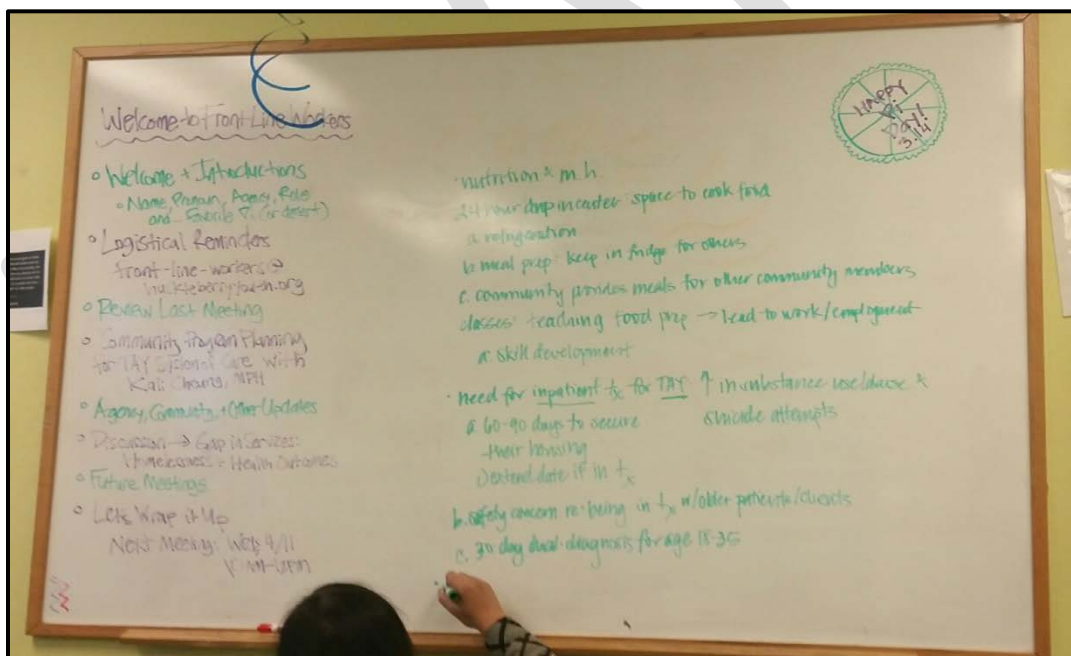 Welcome to Front Line Workers
Welcome + Introductions
Name, Pronoun, Agency, Role
and Favorite Pi (or desert)
Logistical Reminders
front-line-workers@
huckleberryyouth.org
Review Last Meeting
Community Program Planning
for TAY System of Care with
Kali Cheung, MPH
Agency, Community, + Other Updates
Discussion → Gap in Services:
Homelessness + Health Outcomes
Future Meetings
Lets Wrap it Up
Next Meeting: Weds 4/11
HAPPY
Pi
Day!
3.14
nutrition & m.h.
24 hour drop in center space to cook food
a. refrigeration
b. meal prep: keep in fridge for others
c. community provides meals for other community members
classes: teaching food prep → lead to work/employment
a. skill development
need for inpatient tx for TAY ↑ in substance use/abuse &
suicide attempts
a. 60-90 days to secure
their housing
extend date if in tx
b. safety concern re: being in tx w/older patients/clients
c. 30 day dual diagnosis for age 18-35